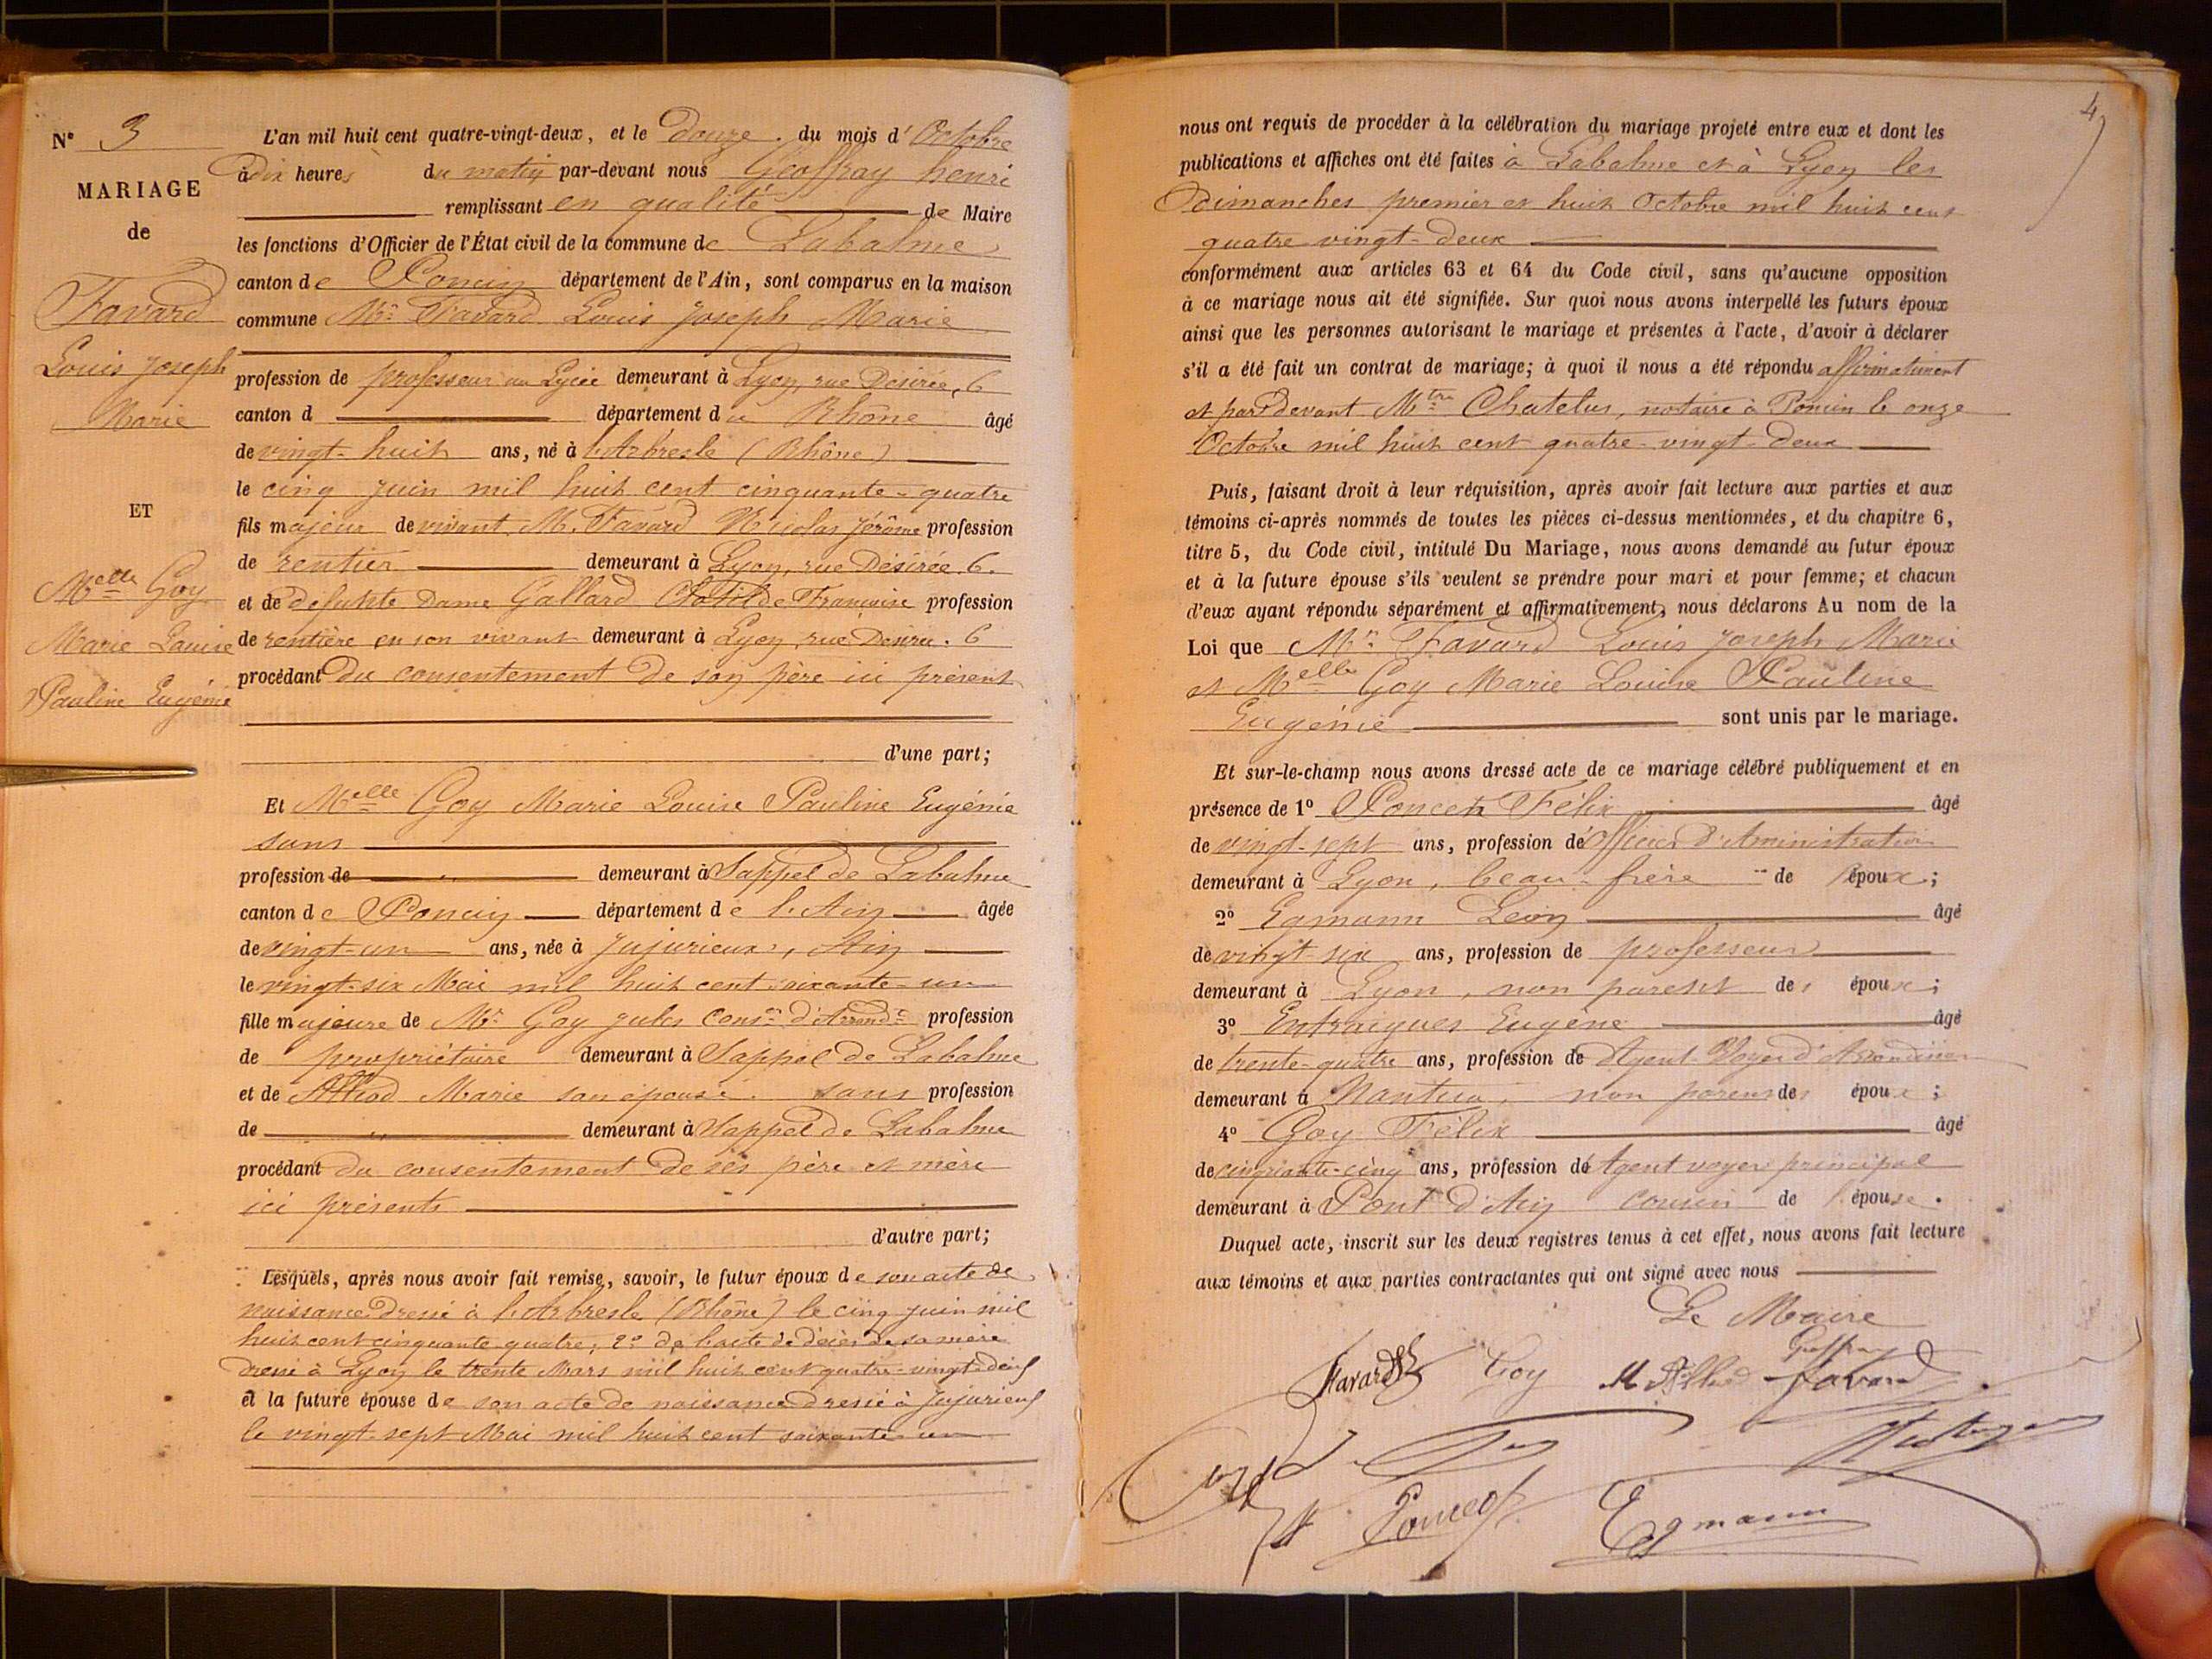 N° 3
MARIAGE
de
Favard
Louis Joseph
Marie
ET
Melle Goy
Marie Louise
Pauline Eugénie
L'an mil huit cent quatre-vingt-deux, et le douze du mois d'Octobre
à dix heures du matin par-devant nous Geoffray henri
remplissant en qualité de Maire
les fonctions d'Officier de l'État civil de la commune de Labalme
canton de Poncin département de l'Ain, sont comparus en la maison
commune Mr Favard Louis Joseph Marie
profession de professeur au Lycée demeurant à Lyon, rue Désirée, 6
canton d département du Rhône âgé
de vingt-huit ans, né à l'Arbresle (Rhône)
le cinq juin mil huit cent cinquante-quatre
fils majeur de vivant M. Favard Nicolas Jérôme profession
de rentier demeurant à Lyon, rue Désirée. 6.
et de défunte Dame Gallard Clotilde Françoise profession
de rentière en son vivant demeurant à Lyon, rue Désirée. 6
procédant du consentement de son père ici présent
d'une part;
Et Melle Goy Marie Louise Pauline Eugénie
sans
profession de " demeurant à Sappel de Labalme
canton de Poncin département de l'Ain âgée
de vingt-un ans, née à Jujurieux, Ain
le vingt-six Mai mil huit cent soixante-un
fille majeure de Mr Goy Jules Conser d'Arrondt profession
de propriétaire demeurant à Sappel de Labalme
et de Alliod Marie son épouse. sans profession
de " demeurant à Sappel de Labalme
procédant du consentement de ses père et mère
ici présents
d'autre part;
Lesquels, après nous avoir fait remise, savoir, le futur époux de son acte de
naissance dressé à l'Arbresle (Rhône) le cinq juin mil
huit cent cinquante-quatre; 2° de l'acte de décès de sa mère
dressé à Lyon le trente Mars mil huit cent quatre-vingt-deux
et la future épouse de son acte de naissance dressé à Jujurieux
le vingt-sept Mai mil huit cent soixante-un
4
nous ont requis de procéder à la célébration du mariage projeté entre eux et dont les
publications et affiches ont été faites à Labalme et à Lyon les
dimanches premier et huit Octobre mil huit cent
quatre vingt-deux
conformément aux articles 63 et 64 du Code civil, sans qu'aucune opposition
à ce mariage nous ait été signifiée. Sur quoi nous avons interpellé les futurs époux
ainsi que les personnes autorisant le mariage et présentes à l'acte, d'avoir à déclarer
s'il a été fait un contrat de mariage; à quoi il nous a été répondu affirmativement
et par devant Mtre Chatelus, notaire à Poncin le onze
Octobre mil huit cent quatre-vingt-deux
Puis, faisant droit à leur réquisition, après avoir fait lecture aux parties et aux
témoins ci-après nommés de toutes les pièces ci-dessus mentionnées, et du chapitre 6,
titre 5, du Code civil, intitulé Du Mariage, nous avons demandé au futur époux
et à la future épouse s'ils veulent se prendre pour mari et pour femme; et chacun
d'eux ayant répondu séparément et affirmativement, nous déclarons Au nom de la
Loi que Mr Favard Louis Joseph Marie
et Melle Goy Marie Louise Pauline
Eugénie sont unis par le mariage.
Et sur-le-champ nous avons dressé acte de ce mariage célébré publiquement et en
présence de 1° Poncet Félix âgé
de vingt-sept ans, profession de Officier d'Aministration
demeurant à Lyon, beau-frère de l'époux;
2° Egmann Léon âgé
de vingt-six ans, profession de professeur
demeurant à Lyon, non parent des époux;
3° Entraygues Eugène âgé
de trente-quatre ans, profession de Agent-Voyer d'Arrondissem
demeurant à Nantua, non parent des époux;
4° Goy Félix âgé
de cinquante-cinq ans, profession de Agent voyer principal
demeurant à Pont d'Ain cousin de l'épouse.
Duquel acte, inscrit sur les deux registres tenus à cet effet, nous avons fait lecture
aux témoins et aux parties contractantes qui ont signé avec nous
Le Maire
Geoffray
Favard Goy M Alliod Favard
Goy
Poncet Egmann